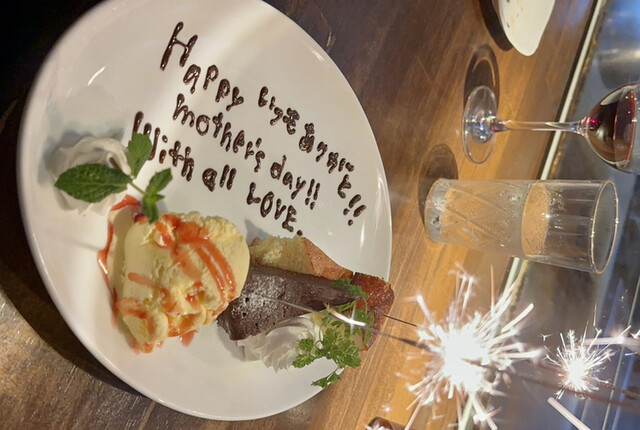 Happy いつもありがと!!
mother's day!!
With all LOVE.